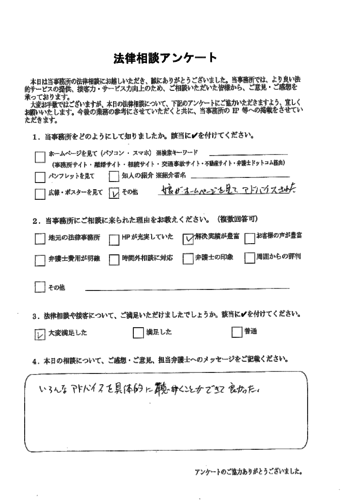 法律相談アンケート
本日は当事務所の法律相談にお越しいただき、誠にありがとうございました。当事務所では、より良い法
的サービスの提供、接客力・サービス力向上のため、ご相談いただいた皆様から、ご意見・ご感想を
承っております。
大変お手数ではございますが、本日の法律相談について、下記のアンケートにご協力いただきますよう、宜しく
お願いいたします。今後の業務の参考にさせていただくと共に、当事務所の HP 等への掲載をさせていた
だきます。
1．当事務所をどのようにして知りましたか。該当に✔を付けてください。
ホームページを見て（パソコン ・ スマホ） ※検索キーワード
（事務所サイト・離婚サイト・相続サイト・交通事故サイト・不動産サイト・弁護士ドットコム経由）
パンフレットを見て 知人の紹介 ※紹介者名
広報・ポスターを見て ✔ その他 ホームページを見て アドバイスされた
2．当事務所にご相談に来られた理由をお教えください。（複数回答可）
地元の法律事務所 HPが充実していた ✔ 解決実績が豊富 お客様の声が豊富
弁護士費用が明確 時間外相談に対応 弁護士の印象 周囲からの評判
その他
3．法律相談や接客について、ご満足いただけましたでしょうか。該当に✔を付けてください。
✔ 大変満足した 満足した 普通
4．本日の相談について、ご感想・ご意見、担当弁護士へのメッセージをご記載ください。
いろんなアドバイスを具体的に聴くことができて良かった。
アンケートのご協力ありがとうございました。